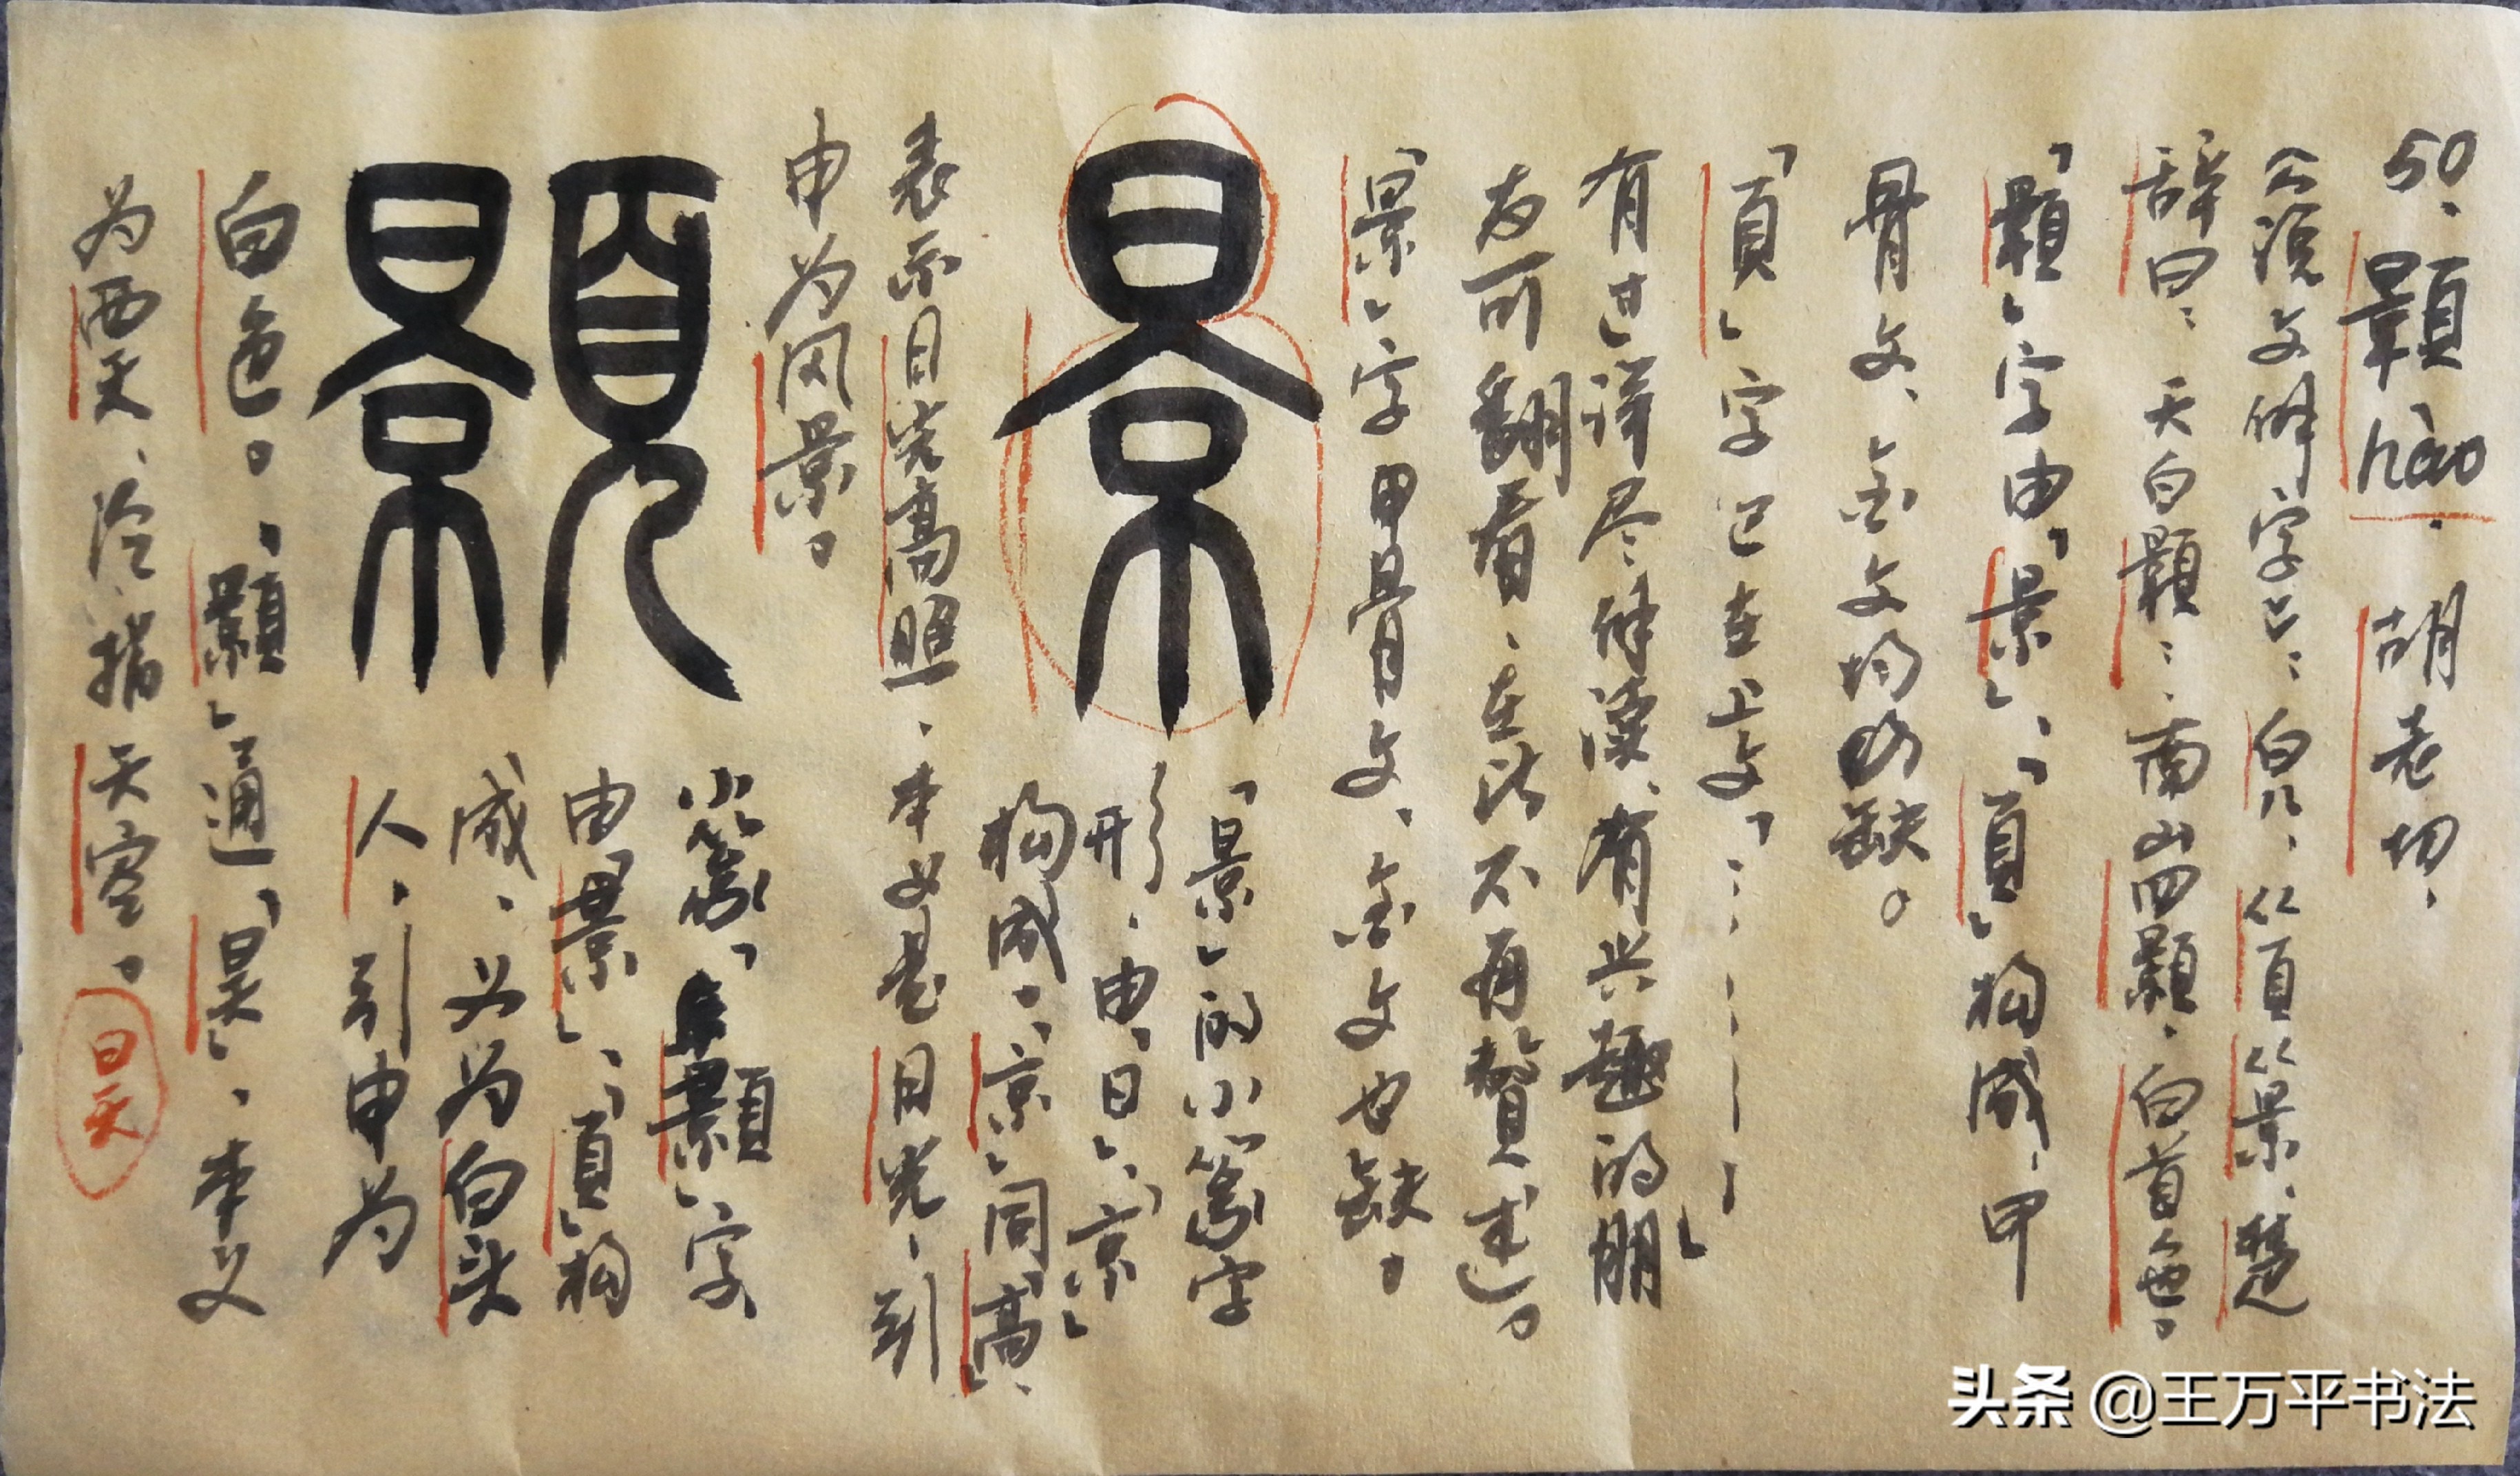 50、顥hào．胡老切．
《说文解字》：白皃，从頁从景，楚
辞曰：天白顥＝．南山四顥，白首也。
「顥」字由「景」、「頁」构成．甲
骨文、金文均缺。
「頁」字已在上文「……」
有过详尽解读，有兴趣的朋
友可翻看，在此不再赘述。
「景」字甲骨文、金文也缺。
景
「景」的小篆字
形，由「日」、「京」
构成。「京」同「高」，
表示日光高照，本义是日光，引
申为风景。
顥
小篆「顥」字
由「景」、「頁」构
成，义为白头
人，引申为
白色。「顥」通「昊」，本义
为西天，泛指天空。
日天
头条 @王万平书法